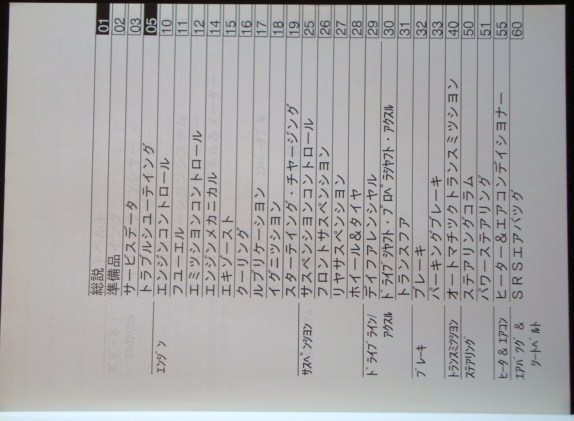 総説 01
準備品 02
サービスデータ 03
トラブルシューティング 05
エンジン エンジンコントロール 10
フューエル 11
エミッションコントロール 12
エンジンメカニカル 14
エキゾースト 15
クーリング 16
ルブリケーション 17
イグニッション 18
スターティング・チャージング 19
サスペンション サスペンションコントロール 25
フロントサスペンション 26
リヤサスペンション 27
ホイール&タイヤ 28
ドライブライン/アクスル ディファレンシャル 29
ドライブシャフト・プロペラシャフト・アクスル 30
トランスファ 31
ブレーキ ブレーキ 32
パーキングブレーキ 33
トランスミッション オートマチックトランスミッション 40
ステアリング ステアリングコラム 50
パワーステアリング 51
ヒータ&エアコン ヒーター&エアコンディショナー 55
エアバッグ&シートベルト SRSエアバッグ 60